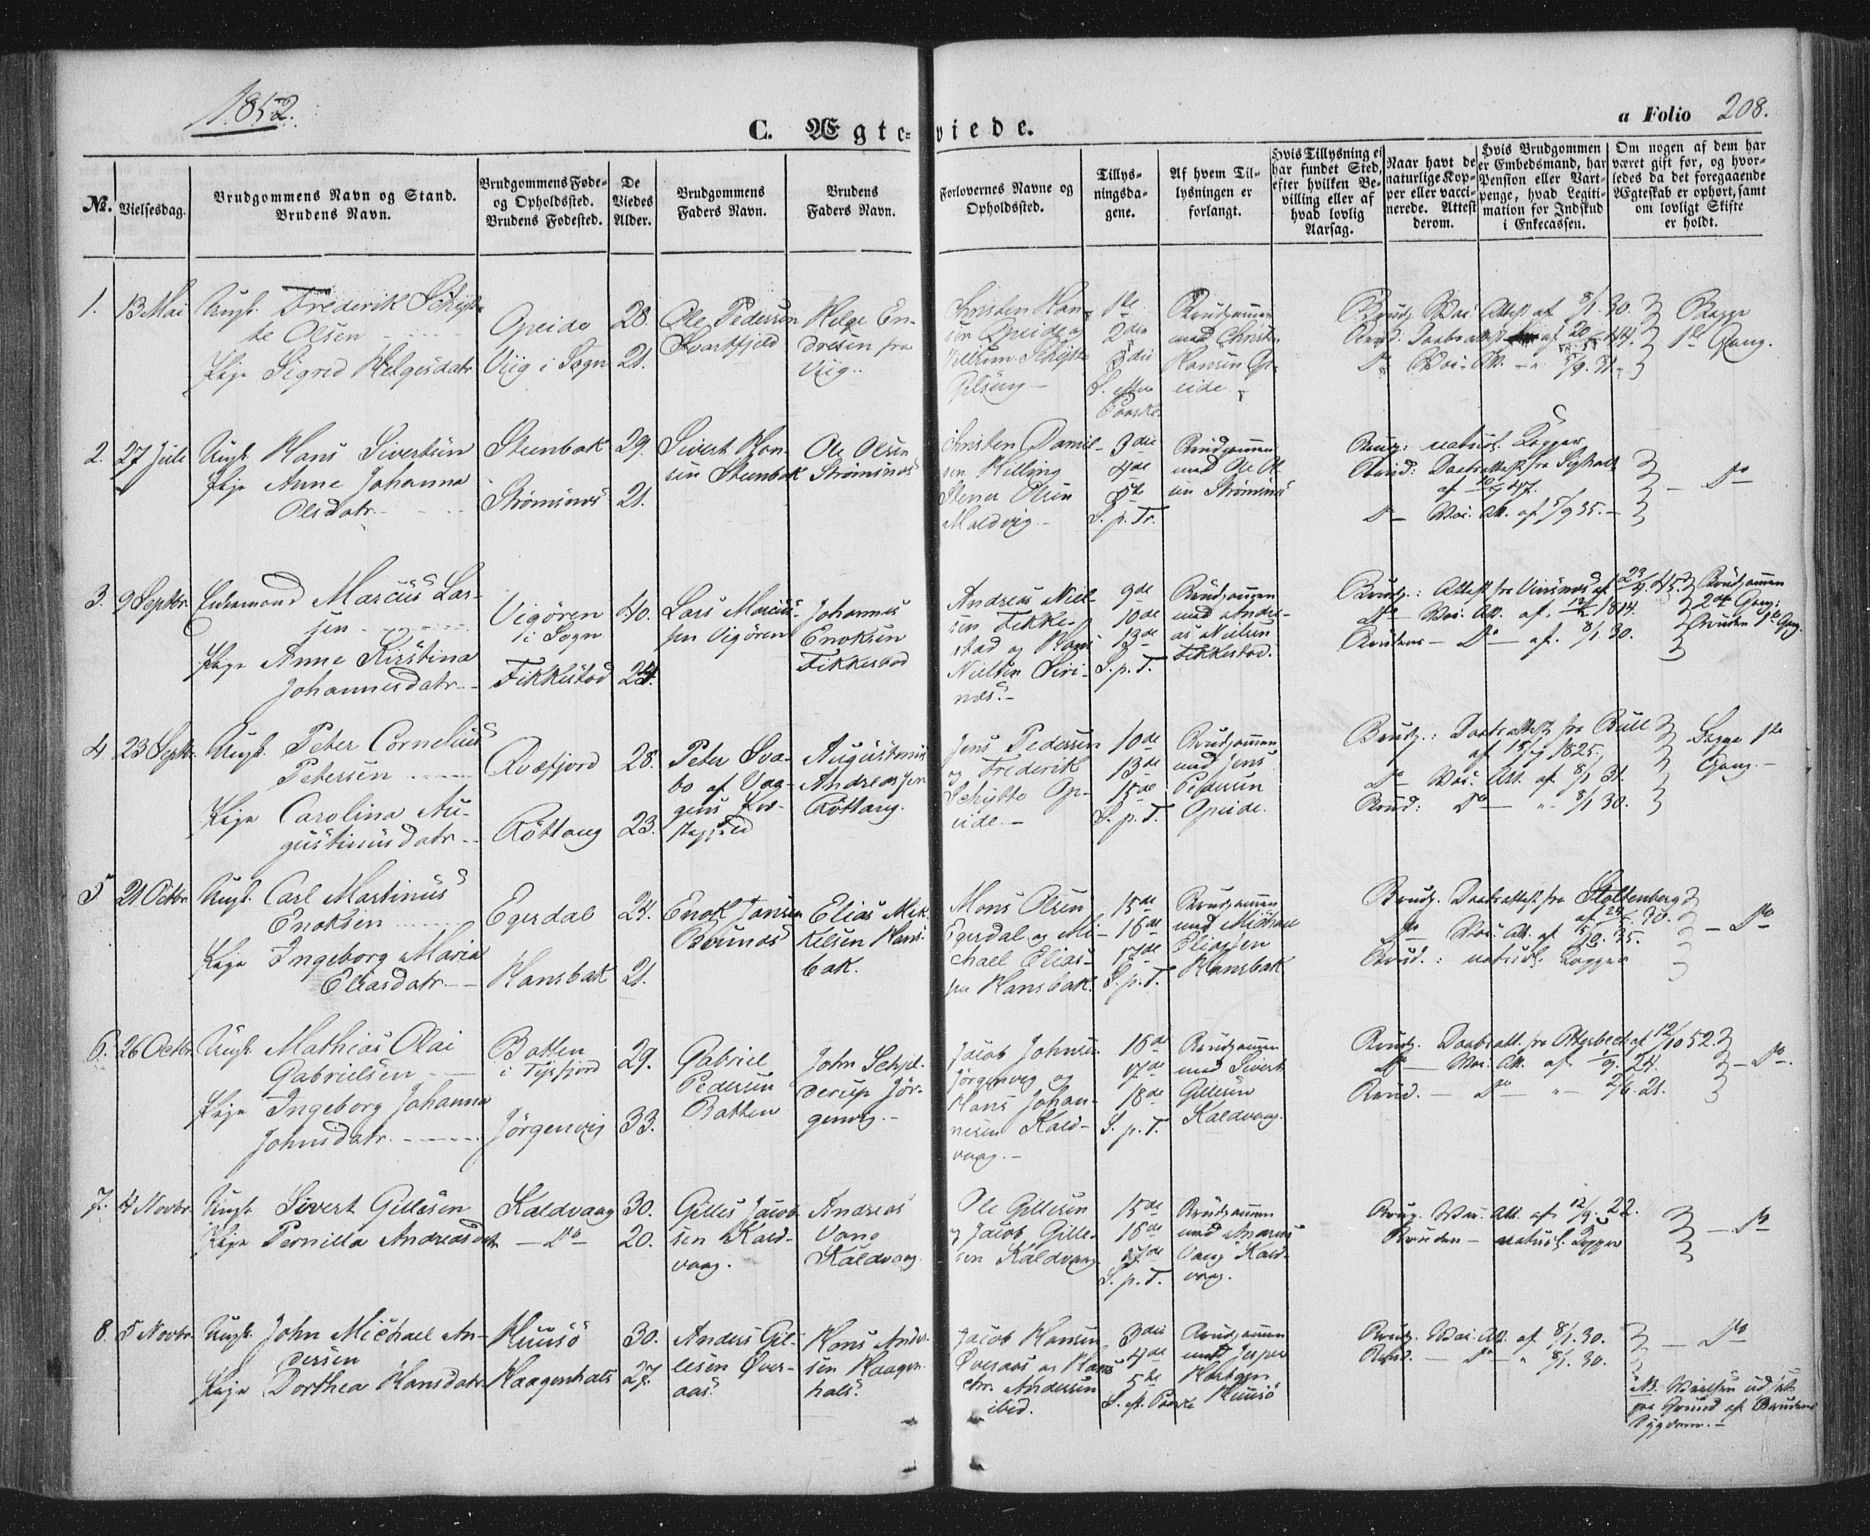 1852.
C. Ægteviede.
a Folio 208.
No.
Vielsesdag.
Brudgommens Navn og Stand.
Brudens Navn.
Brudgommens Føde-
og Opholdssted.
Brudens Fødested.
De
Viedes
Alder.
Brudgommens
Faders Navn.
Brudens
Faders Navn.
Forlovernes Navne og
Opholdssted.
Tillys-
ningsda-
gene.
Af hvem Til-
lysningen er
forlangt.
Hvis Tillysning ei
har fundet Sted,
efter hvilken Be-
villing eller af
hvad lovlig
Aarsag.
Naar havt de
naturlige Kop-
per eller vacci-
nerede. Attest
derom.
Hvis Brudgommen
er Embedsmand, har
Pension eller Vart-
penge, hvad Legiti-
mation for Indskud
i Enkecassen.
Om nogen af dem har
været gift før, og hvor-
ledes da det foregaaende
Ægteskab er ophørt, samt
om lovligt Skifte
er holdt.
1. 13 Mai Ungk. Frederik Schjøt-
te Olsen
Pige Sigrid Helgesdatr
Opeide 28.
Viig i Sogn 21.
Ole Pedersen
Svartfjeld
Helge En-
dresen fra
Viig.
Christen Han-
sen Opeide og
Villum Schjøtte
1ste
2den
3die
S. efter
Paaske.
Brudgommen
med Christen
Hansen Op-
eide.
Brudg. Vac. Attest af 8/1 30.
Do Vac. Att. 5/9 31.
Begge
1ste Gang.
2. 27 Juli Ungk. Hans Sivertsen
Pige Anne Johanna
Olsdatr.
Steenbak 29.
Strømsnes 21.
Sivert Han-
sen Steenbak
Ole Olsen
Strømsnes
Christen Daniel-
sen Helling
Stener Olsen
Maldvig.
3die
4de
5te
S. p. Tr.
Brudgommen
med Ole Ol-
sen Strømsnes
Brudg: naturl. Kopper
Do Vac. Att. af 5/9 35.
Do
3. 9 Septbr. Enkemand Marcus Lar-
sen
Pige Anne Kirstina
Johannesdatr.
Vigøren
i Sogn 40.
Fikkestad 24.
Lars Marcus-
sen Vigøren
Johannes
Enoksen
Fikkestad
Andreas Niel-
sen Fikke-
stad og Hans
Nielsen Siri-
næs.
9de
10de
13de
S. p. T.
Brudgommen
med Andre-
as Nielsen
Fikkestad.
Do Vac. Att. af 1814.
Brudens Do af 8/1 30.
Brudgommen
2den Gang;
Bruden 1ste Gang.
4 23 Septbr. Ungk. Peter Cornelius
Petersen
Pige Carolina Au-
gustinusdatr.
Qvæfjord 28.
Røttang 23.
Peter Sva-
bo af Vaa-
gens Præ-
stegjeld
Augustinus
Andreassen
Røttang.
Jens Pedersen
og Frederik
Schjøtte Op-
eide.
10de
13de
15de
S. p. T.
Brudgommen
med Jens
Pedersen
Opeide.
Brudg.: Daabsattest fra Bull
af 15/7 1825,
Do Vac. Att. af 8/1 31.
Brud: Do 8/1 30.
Begge 1ste
Gang.
5 21 Octbr. Ungk. Carl Martinus
Enoksen
Pige Ingeborg Maria
Eliasdatr.
Egerdal 24.
Hansbak 21.
Enok Jansen
Elias Mik-
kelsen Hans-
bak.
Mons Olsen
Egerdal og Mi-
chael Elias-
sen Hansbak.
15de
16de
17de
S. p. T.
Brudgommen
med Michael
Eliassen
Hansbak
Brudg. Daabsattest fra Stoltenberg
Do Vac. Att. af 35.
Brud.: naturl. Kopper
Do
6. 26 Octbr. Ungk. Mathias Olai
Gabrielsen
Pige Ingeborg Johanna
Johnsdatr.
Botten
i Tysfjord 29.
Jørgenvig 33.
Gabriel
Pedersen
Botten
John Schjel-
derup Jør-
genvig.
Jacob Johnsen
Jørgenvig og
Hans Johan-
nesen Kald-
vaag.
16de
17de
18de
S. p. T.
Brudgommen
med Sivert
Gillesen
Kaldvaag.
Brudg. Daabsatt. fra Otterbech af 12/10 52.
Do Vac. Att. af 24.
Brud. Do 21.
Do
7. 4 Novbr. Ungk. Sivert Gillesen
Pige Pernilla Andreasdatr.
Kaldvaag 30.
Do 20.
Gilles Jacob-
sen Kald-
vaag.
Andreas
Vang
Kaldvaag.
Ole Gillesen
og Jacob Gille-
sen Kaldvaag
15de
16de
17de
S. p. T.
Brudgommen
med Andreas
Vang Kald-
vaag.
Brudg. Vac. Att. af 12/9 22.
Bruden naturl. Kopper
Do
8. 5 Novbr. Ungk. John Michael An-
dersen
Pige Dorthea Hansdatr
Huusø 30.
Haagenhals 27.
Anders Gil-
lesen Øver-
aas.
Hans Ander-
sen Haagen-
hals.
Jacob Hansen
Øveraas og Hans
Chr. Andersen
ibid.
3die
4de
5te
S. ef. Paaske
Brudgommen
med Jesper
Huusø
Brudg. Vac. Att. af 8/1 30.
Brud. Do 8/1 30.
Do
NB. Vielsen udsat
paa Grund af Brudens
Sygdom.